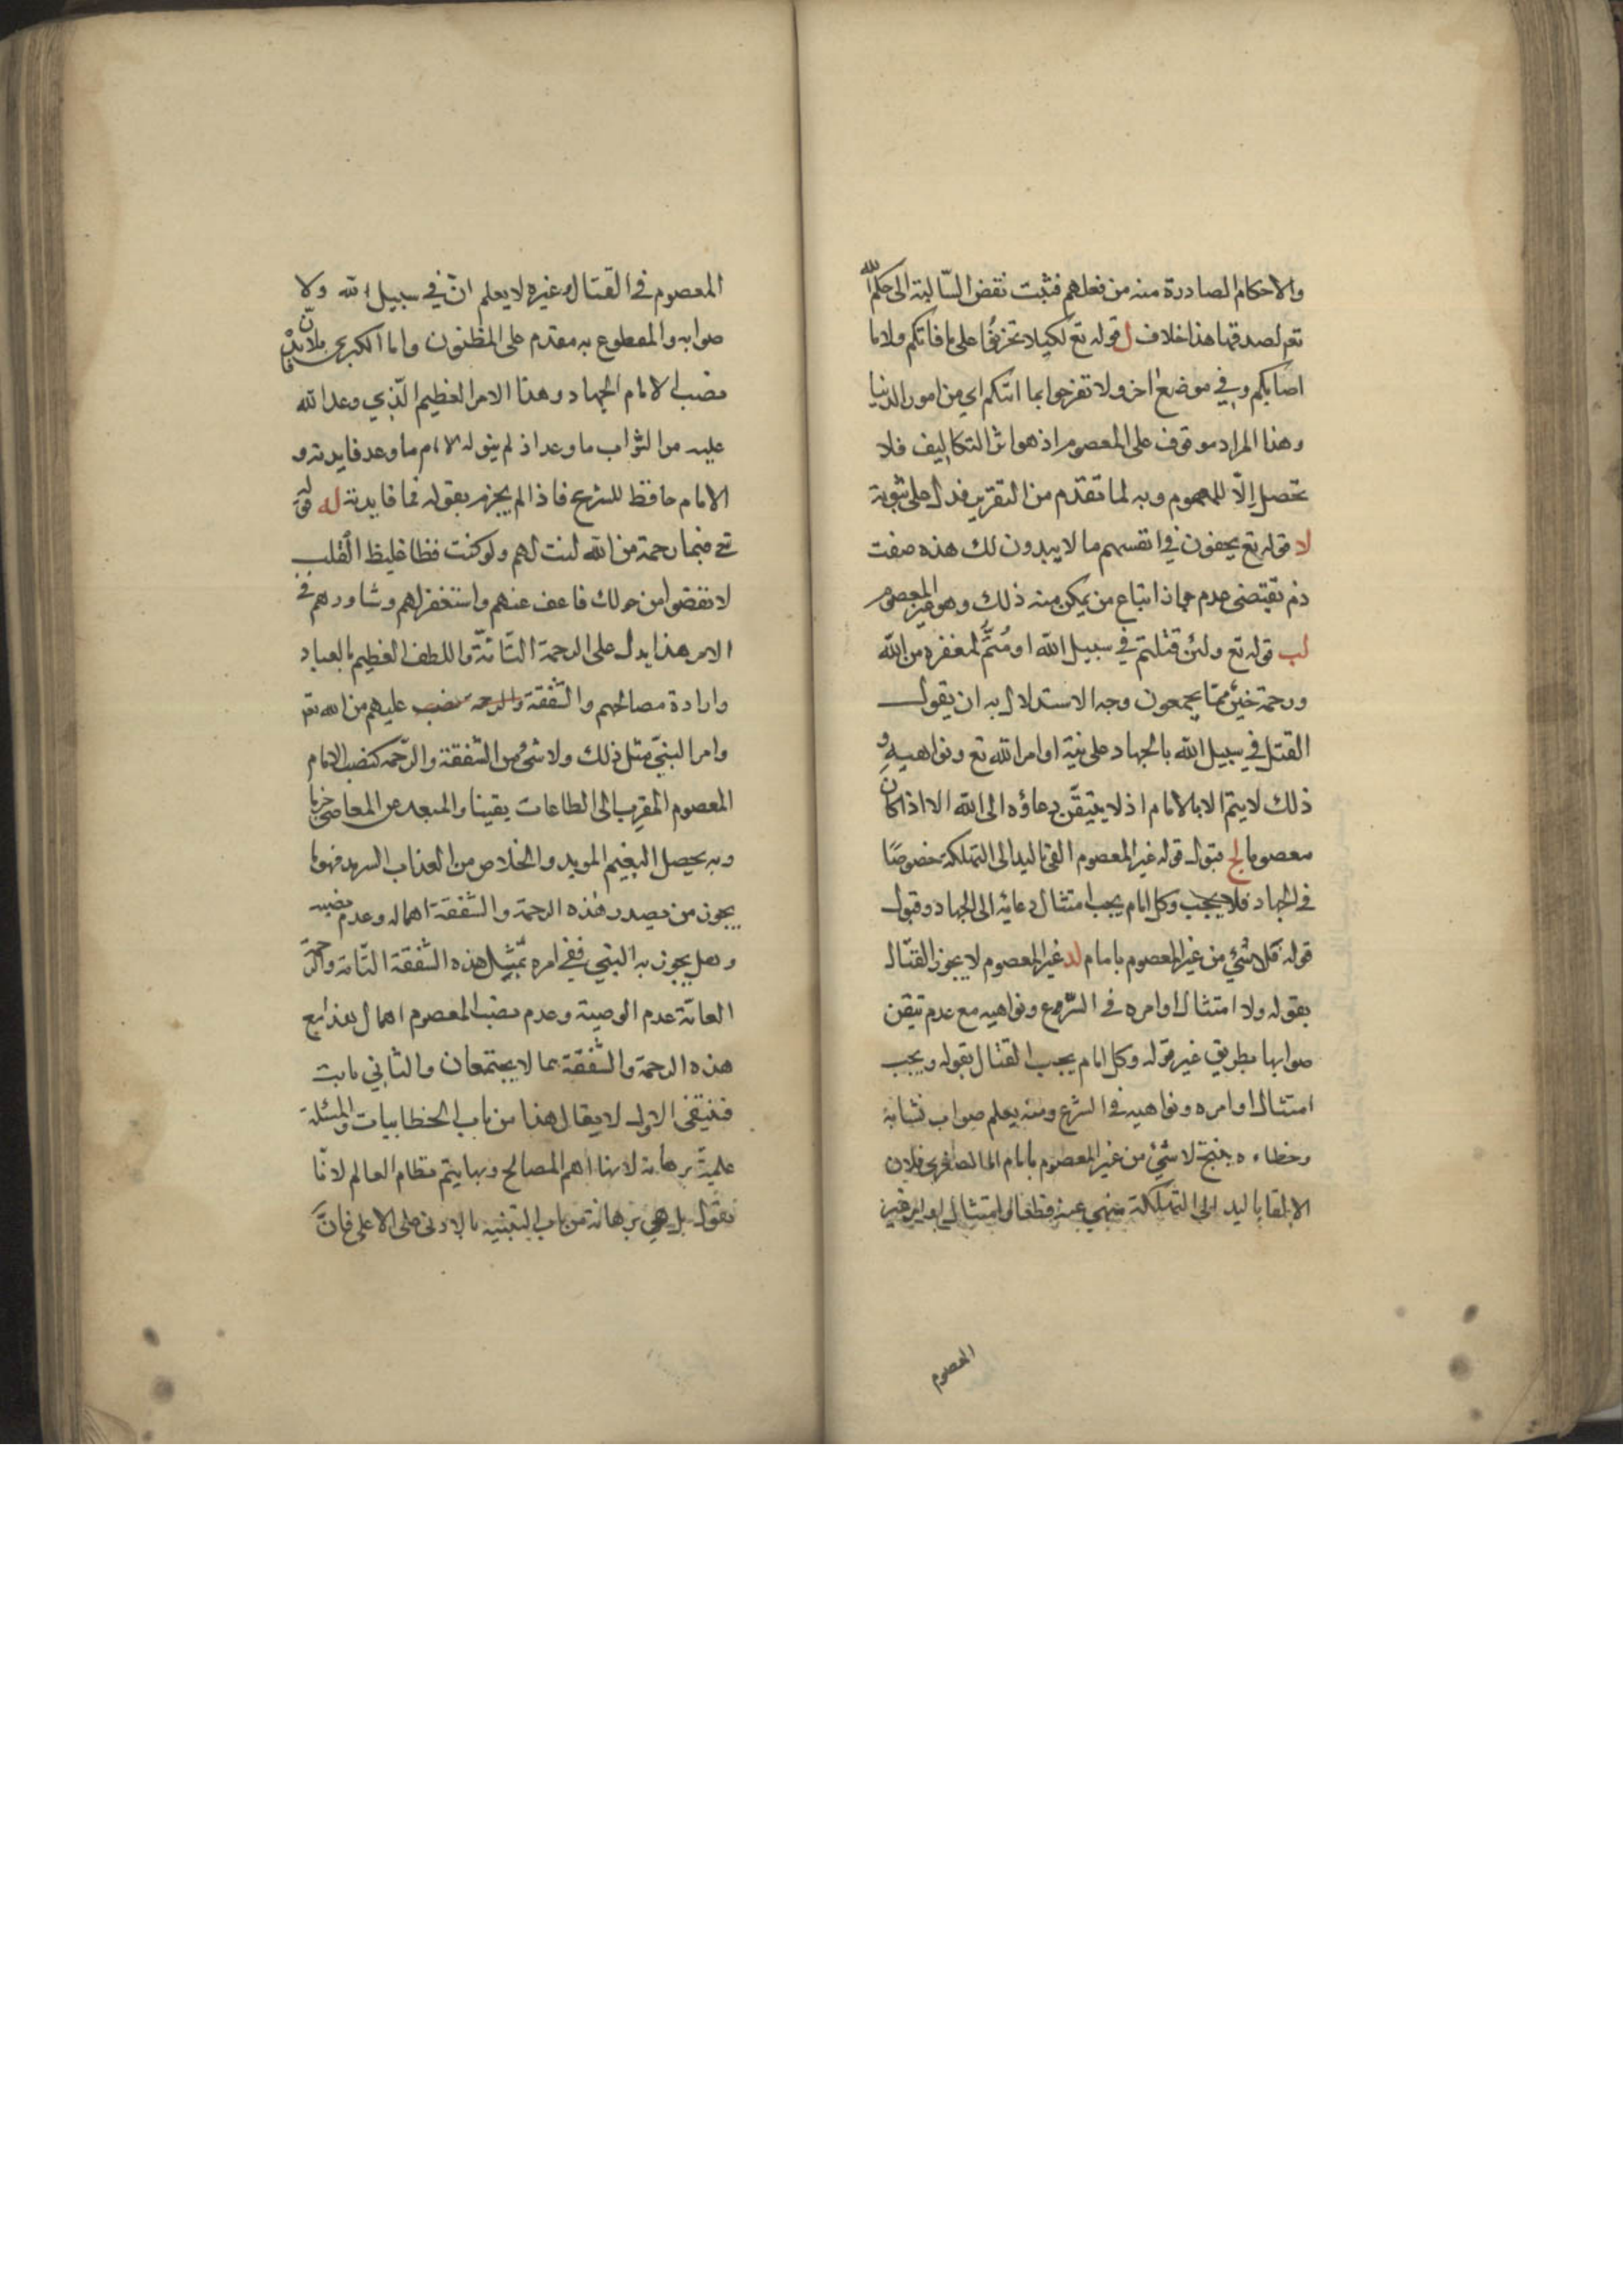 والاحكام الصادرة منه من فعلهم فثبت نقض السالبة الى حكم الله
تعم لصدقها هذا خلاف ل قوله تع لكيلا تحزنوا على ما فاتكم ولا ما
اصابكم وفي موضع اخر ولا تفرحوا بما اتيكم اي من امور الدنيا
وهذا المراد موقوف على المعصوم اذ هو اثر التكاليف فلا
تحصل الّا للمعصوم وبه لما تقدم من التقرير فدل على ثبوته
لا قوله تع يخفون في انفسهم ما لا يبدون لك هذه صفت
ذم تقتضى عدم جواز اتباع من يمكن منه ذلك وهو غير المعصوم
لب قوله تع ولئن قتلتم في سبيل الله او متم لمغفرة من الله
ورحمة خير مما يجمعون وجه الاستدلال به ان يقول
القتل في سبيل الله بالجهاد على نية اوامر الله تع ونواهيه و
ذلك لا يتم الا بالامام اذ لا يتيقن دعاؤه الى الله الا اذا كان
معصوما لج قبول قوله غير المعصوم القى باليد الى التهلكة خصوصًا
في الجهاد فلا يجب وكل امام يجب امتثال دعائه الى الجهاد وقبول
قوله فلا شئ من غير المعصوم بامام لد غير المعصوم لا يجوز القتال
بقوله ولا امتثال اوامره في الشرع ونواهيه مع عدم تيقن
صوابها بطريق غير قوله وكل امام يجب القتال بقوله ويجب
امتثال اوامره ونواهيه في الشرع ومنه يعلم صواب
وخطاءه ينتج لا شئ من غير المعصوم بامام اما الصغرى فلان
الالقا باليد الى التهلكة منهي عنه قطعا وامتثال اوامر غير
المعصوم
المعصوم في القتال وغيره لا يعلم انه في سبيل الله ولا
صوابه والمقطوع به مقدم على المظنون واما الكبرى فلان فايدة
نصب الامام الجهاد وهذا الامر العظيم الّذي وعد الله
عليه من الثواب ما وعد اذ لم ... الامام ما وعد فايدته و
الامام حافظ للشرع فاذا لم يجزم بقوله فما فايدته له قوله
تع فبما رحمة من الله لنت لهم ولو كنت فظا غليظ القلب
لانفضوا من حولك فاعف عنهم واستغفر لهم وشاورهم في
الامر هذا يدل على الرحمة التامة واللطف العظيم بالعباد
وارادة مصالحهم والشفقة والرحمة نصب عليهم من الله تعم
وامر النبي مثل ذلك ولا شئ من الشفقة والرحمة كنصب الامام
المعصوم المقرب الى الطاعات يقينا والمبعد عن المعاصى جزما
وبه يحصل النعيم المويد والخلاص من العذاب السرمد فهل
يجوز من يصدر هذه الرحمة والشفقة اهماله وعدم نصبه
وهل يجوز به النبي ففي امره بمثل هذه الشفقة التامة والرحمة
العامة عدم الوصية وعدم نصب المعصوم اهمال لهذا مع
هذه الرحمة والشفقة مما لا يجتمعان والثاني ثابت
فينتفى الاول لا يقال هذا من باب الخطابيات والمسئلة
علمية برهانية لانها اهم المصالح وبها يتم نظام العالم لانّا
نقول بل هي برهانية من باب التنبيه بالادنى على الاعلى فانّ